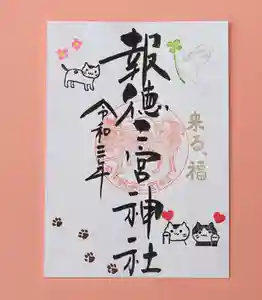 来る、福
報徳三宮神社
令和三年